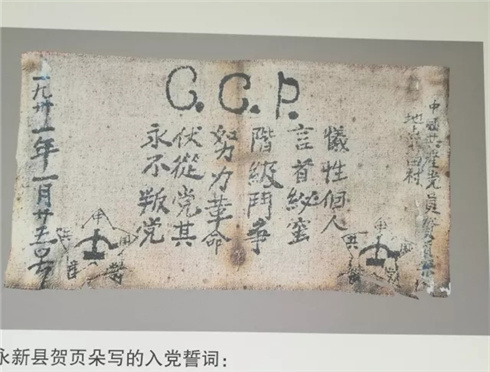 C.C.P.
中國共產党員
地点 田村
犧牲個人
言首
階級鬥爭
努力革命
伏從党其
永不叛党
一九卅一年一月廿五
永新县贺页朵写的入党誓词：